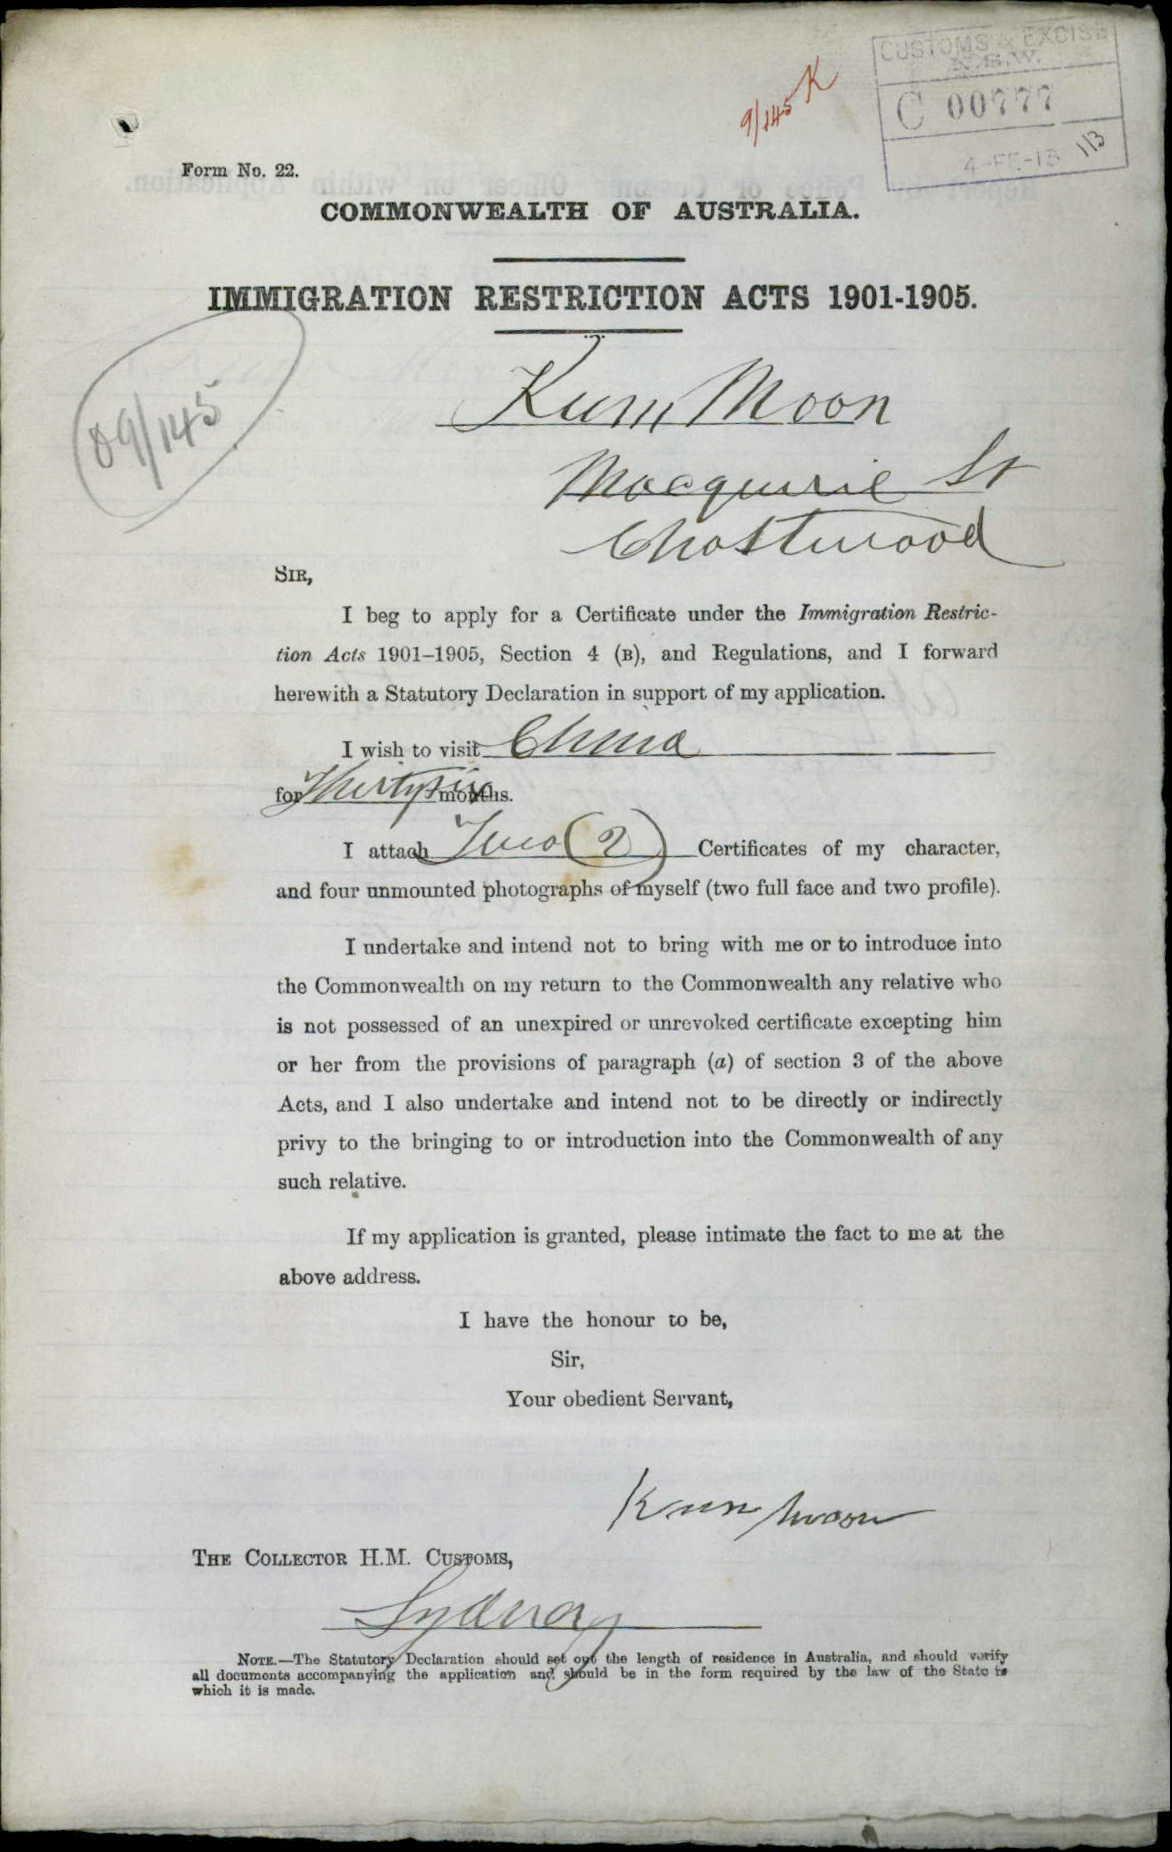 9/145 K
CUSTOMS & EXCISE
N.S.W.
C 00777
4-FE-13
113
Form No. 22.
COMMONWEALTH OF AUSTRALIA.
IMMIGRATION RESTRICTION ACTS 1901-1905.
09/145
Kum Moon
Macquarie St
Chastwood
SIR,
I beg to apply for a Certificate under the Immigration Restric-
tion Acts 1901–1905, Section 4 (B), and Regulations, and I forward
herewith a Statutory Declaration in support of my application.
I wish to visit China
for Thirtysix months.
I attach Two (2) Certificates of my character,
and four unmounted photographs of myself (two full face and two profile).
I undertake and intend not to bring with me or to introduce into
the Commonwealth on my return to the Commonwealth any relative who
is not possessed of an unexpired or unrevoked certificate excepting him
or her from the provisions of paragraph (a) of section 3 of the above
Acts, and I also undertake and intend not to be directly or indirectly
privy to the bringing to or introduction into the Commonwealth of any
such relative.
If my application is granted, please intimate the fact to me at the
above address.
I have the honour to be,
Sir,
Your obedient Servant,
Kum Moon
THE COLLECTOR H.M. CUSTOMS,
Sydney
NOTE.—The Statutory Declaration should set out the length of residence in Australia, and should verify
all documents accompanying the application and should be in the form required by the law of the State in
which it is made.